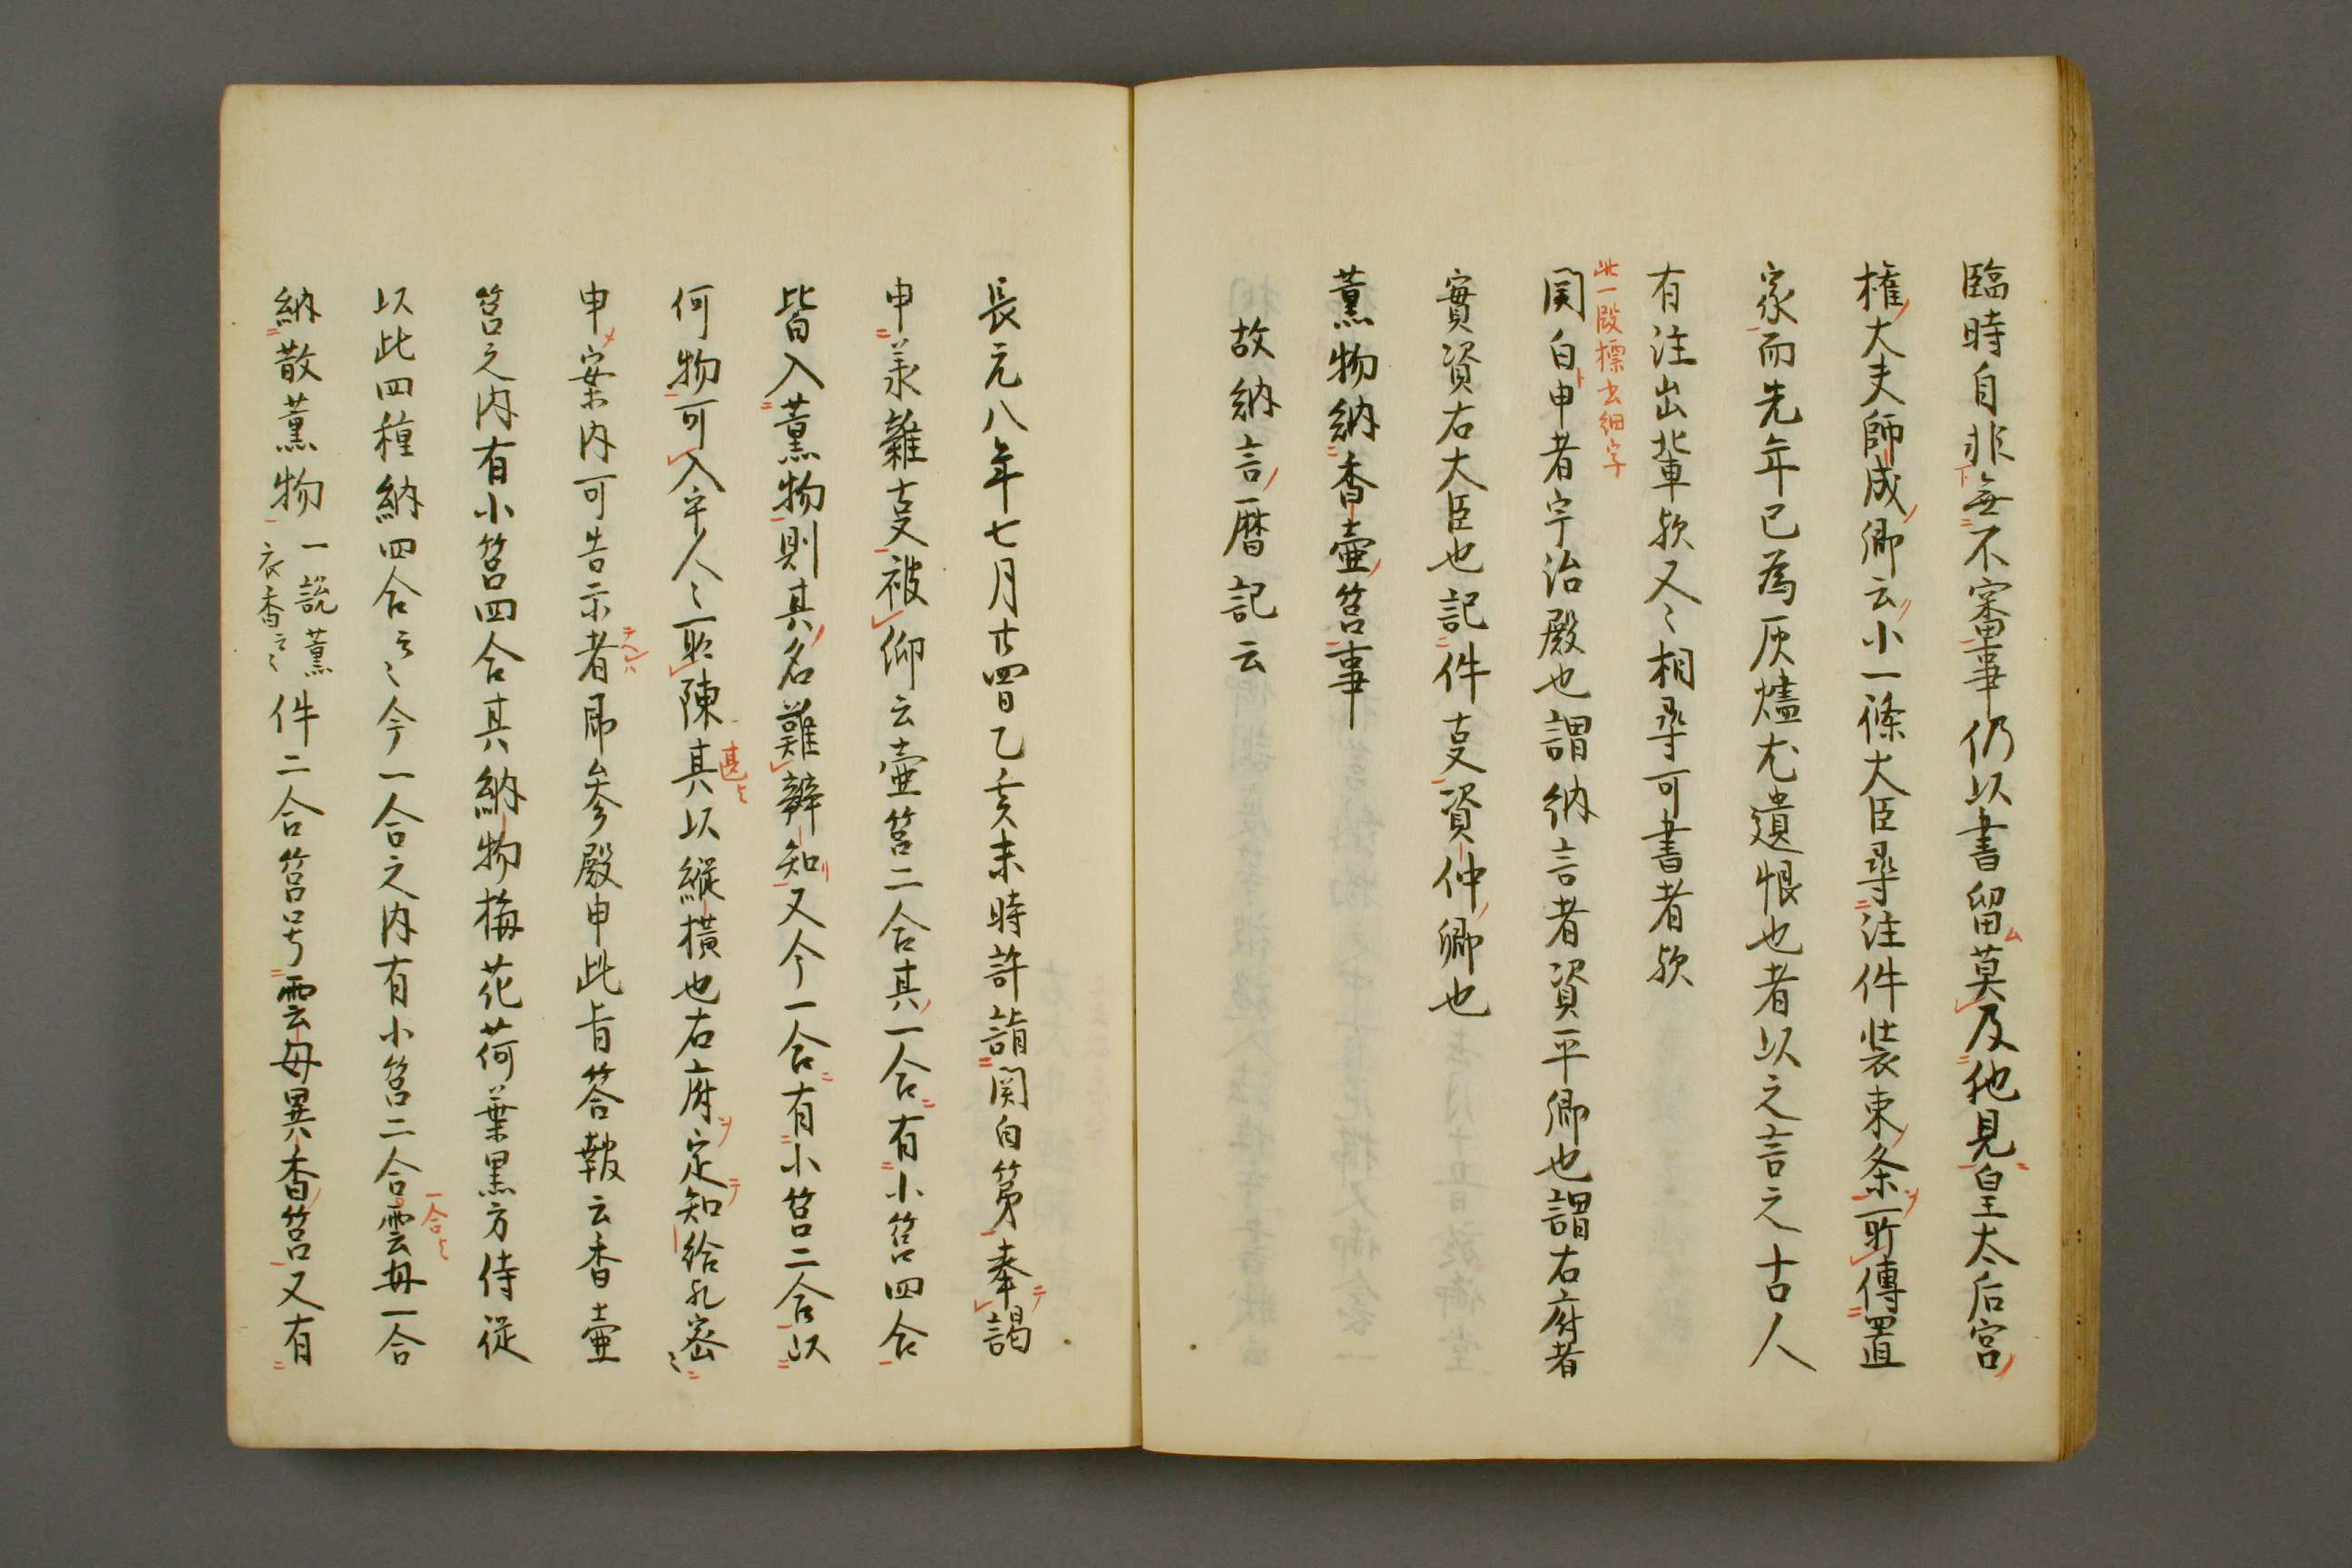 臨時自非無不審事仍以書留莫及他見皇太后宮
権大夫師成卿云小一條大臣尋注件装束条所傳置
家而先年已為灰燼尤遺恨也者以之言之古人
有注出輩欤又〻相尋可書者欤
此一段標出細字
関白申者宇治殿也謂納言者資平卿也謂右府者
實資右大臣也記件叓資仲卿也
薫物納香壷筥事
故納言暦記云
長元八年七月廿四日乙亥未時許詣関白第奉謁
申羕雜叓被仰云壷筥二合其一合有小筥四合
皆入薫物則其名難辨知又今一合有小筥二合以
何物可入乎人〻所陳其以縦横也右府定知給欤密〻
甚乍
申案内可告示者即参殿申此旨答報云香壷
テヘレハ
筥之内有小筥四合其納物梅花荷葉黒方侍従
以此四種納四合云〻今一合之内有小筥二合雲母一合
一合乍
納散薫物一説薫衣香云〻件二合筥号雲母異香筥又有